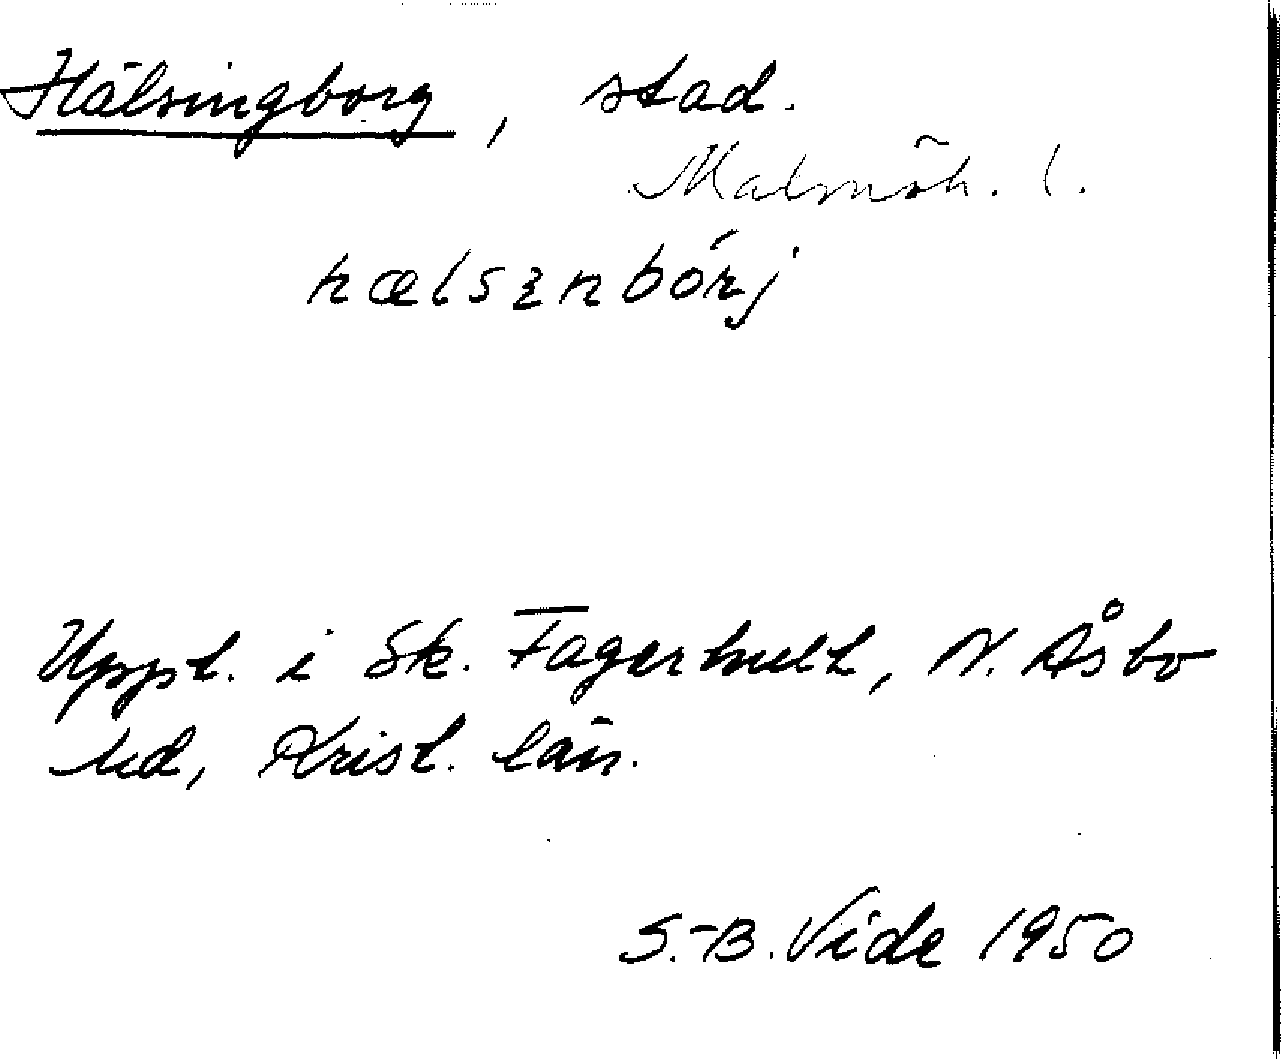 Hälsingborg, stad.
Malmöh. l.
hælsɜnbórj
Uppt. i Sk. Fagerhult, N. Åsbo
hd, Krist. län.
S.-B. Vide 1950